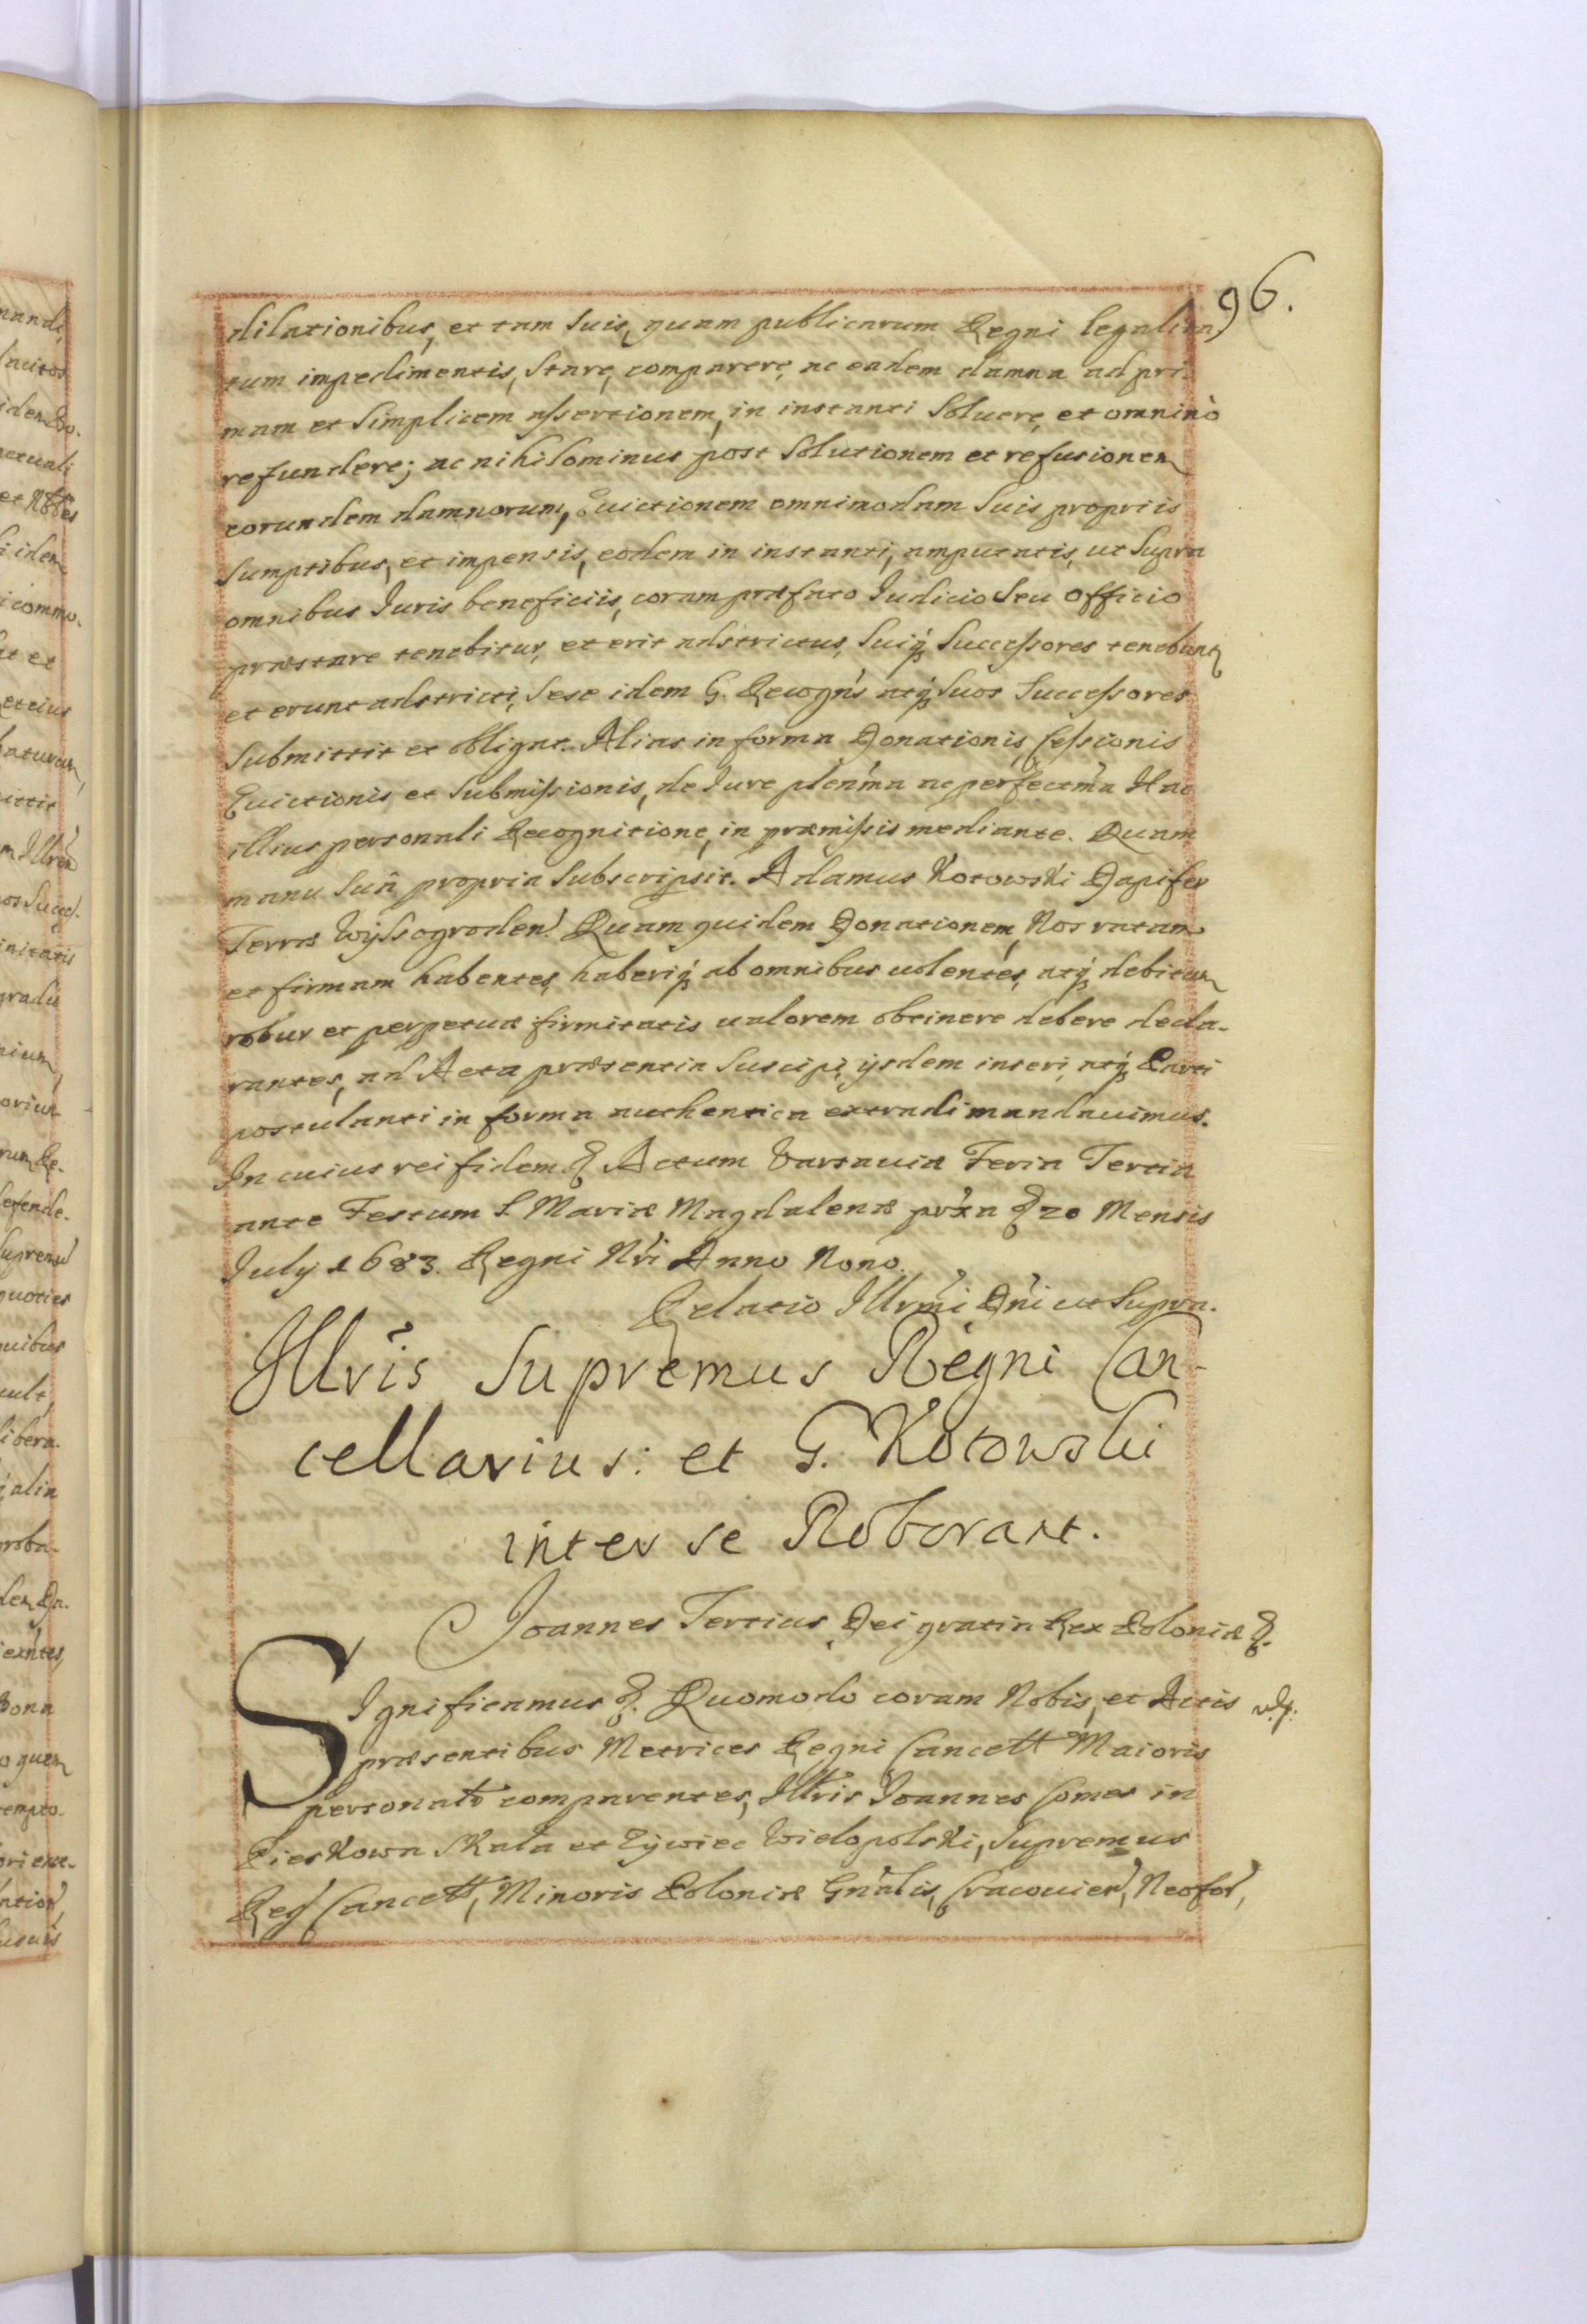 96.
dilationibus, et tam suis, quam publicarum Regni legalita-
tum impedimentis, stare, comparere, ac eadem damna ad pri-
mam et simplicem assertionem, in instanti soluere, et omninò
refundere; ac nihilominus post solutionem et refusionem
eorundem damnorum, Euictionem omnimodam suis propriis
sumptibus, et impensis, eodem in instanti, amputatis, ut supra
omnibus Iuris beneficiis, coram præfato Iudicio seu officio
præstare tenebitur, et erit adstrictus, suiq; successores tenebunt
et erunt adstricti, sese idem G. Recogn's atq; suos successores
submittit et obligat. Alias in forma Donationis, Cessionis
Euictionis, et submissionis, de Iure plen'ma ac perfect'ma Hac
illius personali Recognitione, in præmissis mediante. Quam
manu suâ propria subscripsit. Adamus Kotowski Dapifer
Terræ Wyssogroden. Quam quidem Donationem, Nos ratam
et firmam habentes, haberiq; ab omnibus uolentes, atq; debitum
robur et perpetuæ firmitatis ualorem obtinere debere decla-
rantes, ad Acta præsentia suscipi, ijsdem inseri, atq; Parti
postulanti in forma authentica extradi mandauimus.
In cuius rei fidem & Actum Varsauiæ Feria Tertia
ante Festum S Mariæ Magdalenæ prox'a & 20 Mensis
July 1683. Regni Nri Anno Nono.
Relatio Illrmi Dni ut supra.
Illris Supremus Regni Can-
cellarius: et G. Kotowski
inter se Roborant.
Joannes Tertius Dei gratia Rex Poloniæ &.
Significamus &. Quomodo coram Nobis, et Actis
præsentibus Metrices Regni Cancell Maioris
personalr comparentes, Illris Ioannes Comes in
Pieskowa Skała et Zywiec Wielopolski, Supremus
Reg Cancell, Minoris Poloniæ Gnalis, Cracouien, Neofor,